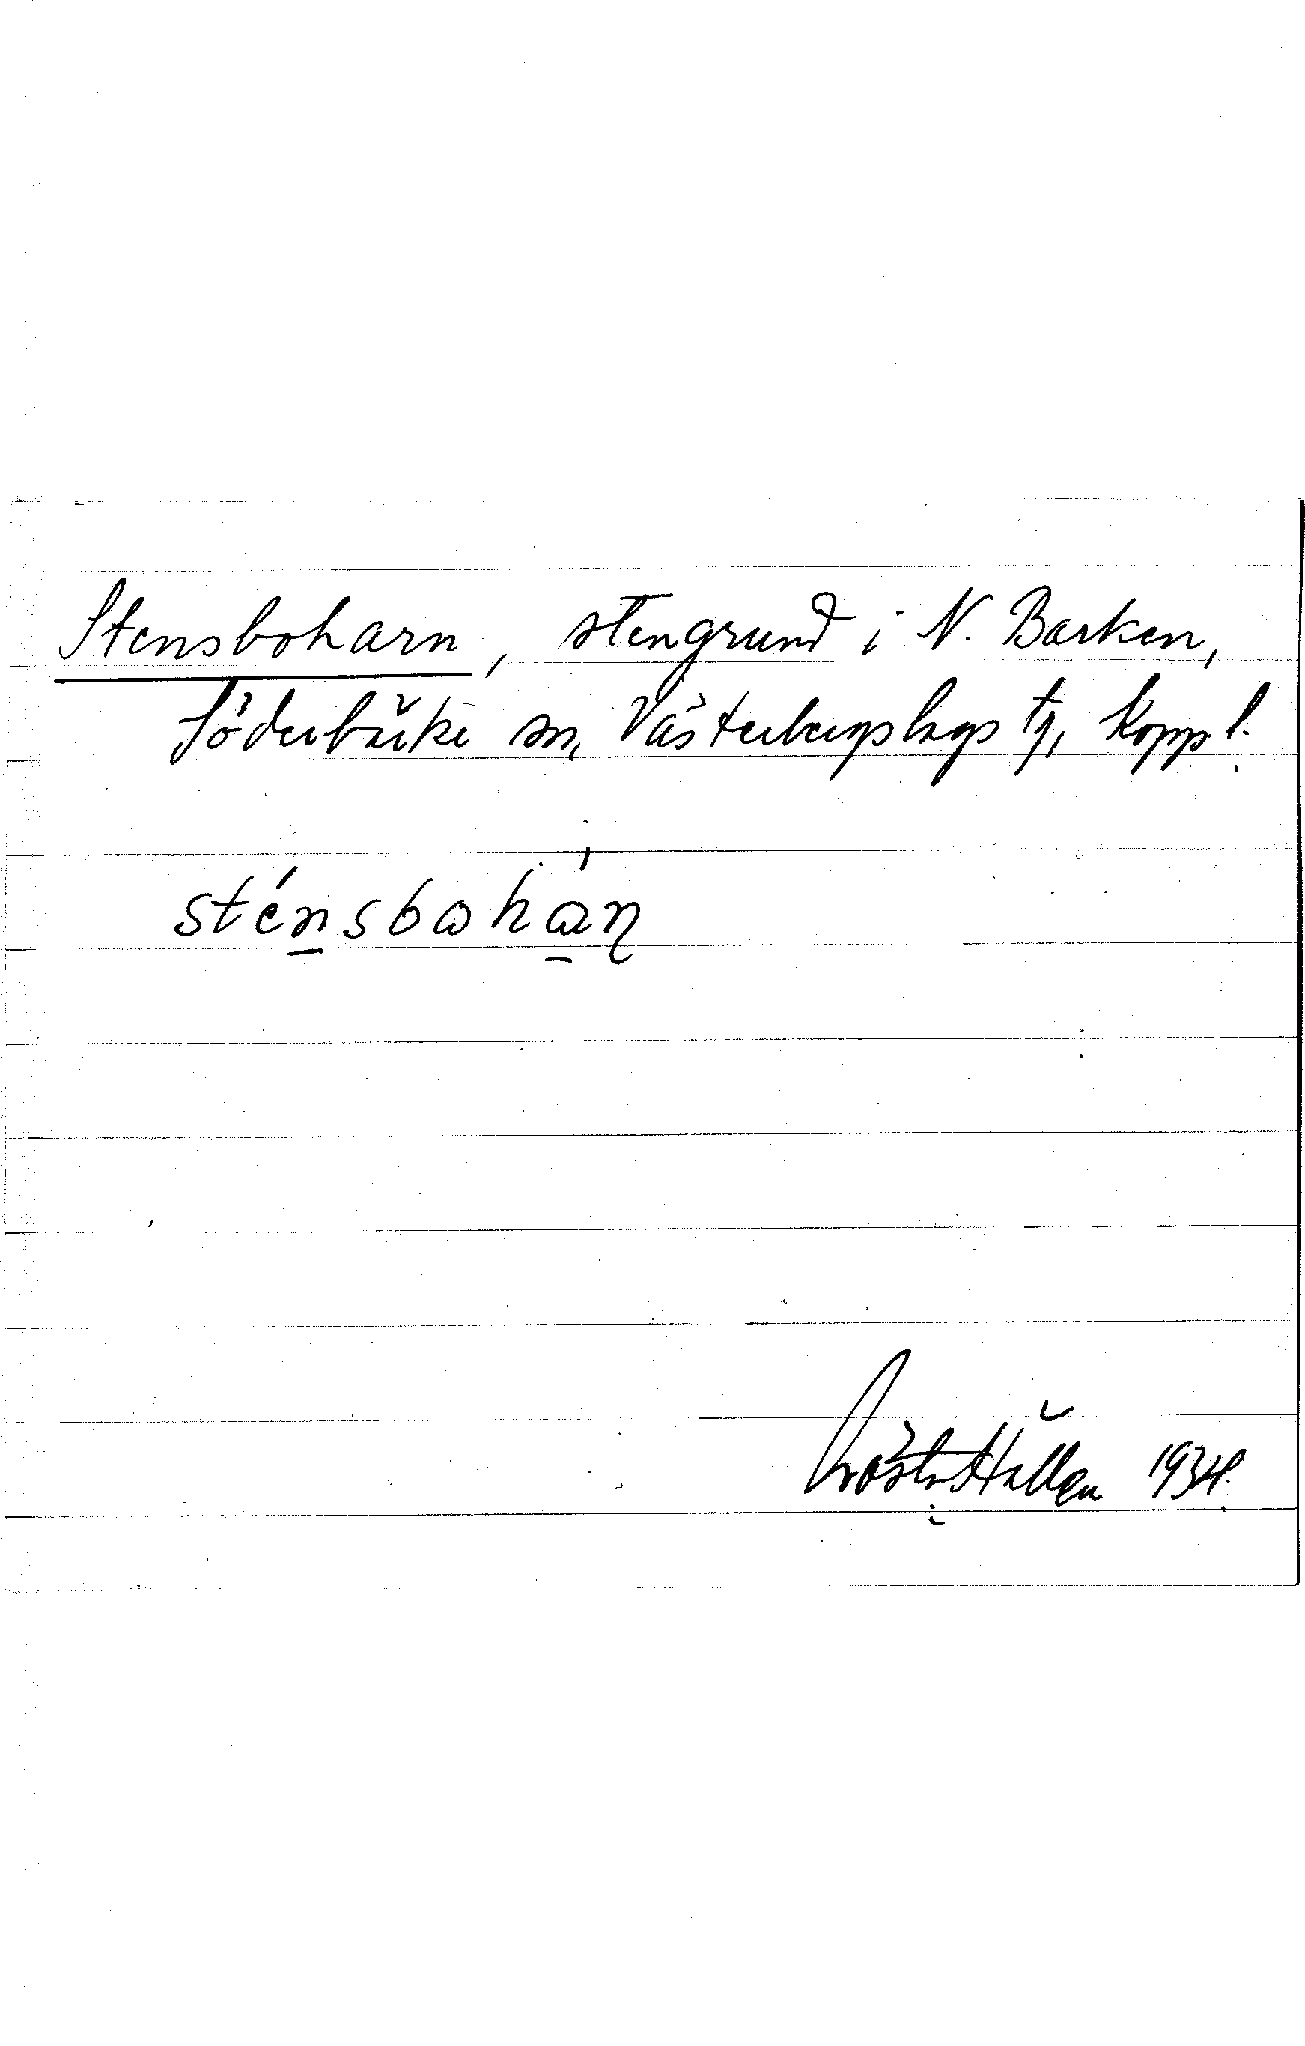 Stensboharn, stengrund i N. Barken,
Söderbärke sn, Västerbergslags tg, Kopp l.
sténsbohán
Hallén 1934.